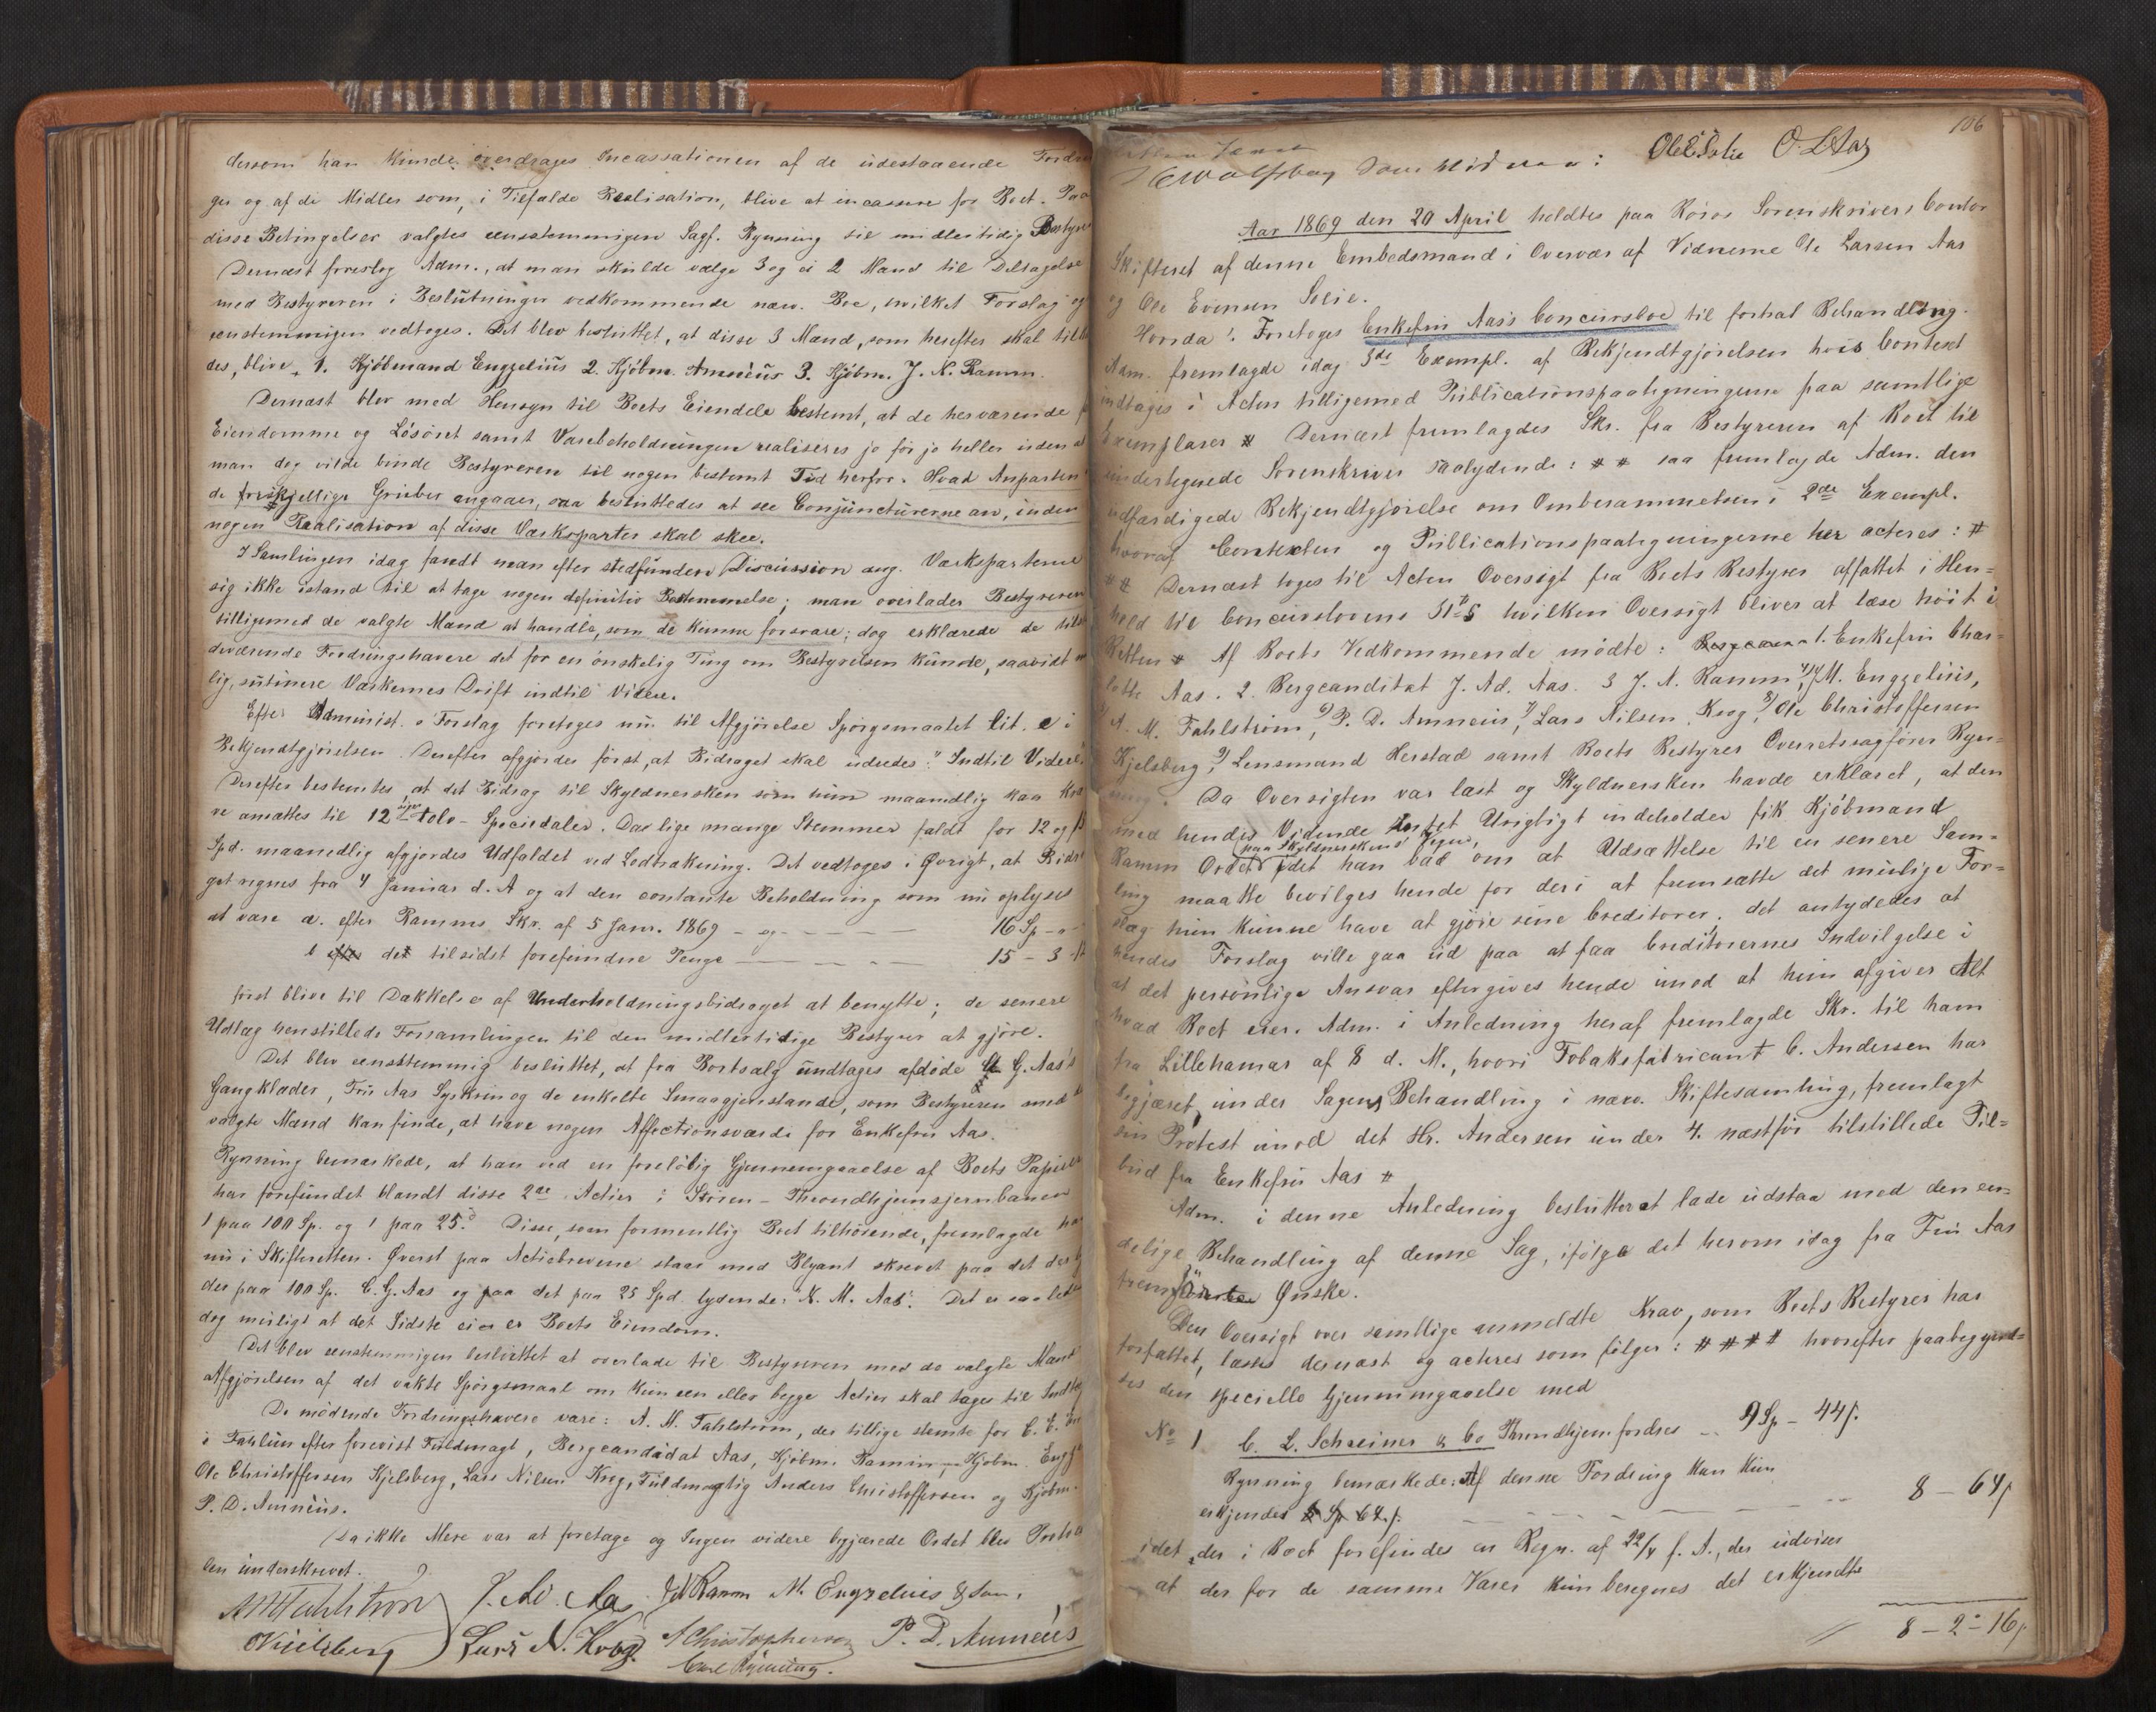 dersom han kunde overdrages Incassationen af de udestaaende Fordrin
ger og af de Midler som, i Tilfælde Realisation, blive at incassere for Boet. Paa
disse Betingelser valgtes eensstemmigen Sagf. Rynning til midlertidig Bestyrer
Dernæst foreslog Adm., at man skulde vælge 3 og ei 2 Mand til Deltagelse
med Bestyreren i Beslutninger vedkommende nærv. Boe, hvilket Forslag og
eenstemmigen vedtoges. Det blev besluttet, at disse 3 Mænd, som herefter skal tilk
des, blive, 1. Kjöbmand Engzelius 2. Kjöbm. Amnéus 3. Kjöbm. J. N. Ramm.
Dernæst blev med Hensyn til Boets Eiendele bestemt, at de herværende
Eiendomme og Lösöret samt Varebeholdningen realiseres jo för jo heller uden at
man dog vilde binde Bestyreren til nogen bestemt Tid herfor. Hvad Anparten i
de forskjellige Gruber angaaer, saa besluttedes at see Conjuncturerne an, inden
nogen Realisation af disse Værksparter skal skee.
I Samlingen idag fandt man efter stedfunden Discussion ang. Værksparterne
sig ikke istand til at tage nogen definitiv Bestemmelse; man overlader Bestyreren
tilligemed de valgte Mænd at handle, som de kunne forsvare; dog erklærede de tils
deværende Fordringshavere det for en önskelig Ting om Bestyrelsen kunde, saavidt
lig, sutinere Værkernes Drift indtil Videre.
Efter Administ.s Forslag foretoges nu til Afgjörelse Spörgsmaalet lit. e i
Bekjendtgjörelsen. Derefter afgjordes först, at Bidraget skal udredes: "Indtil Videre".
Derefter bestemtes, at det Bidrag til Skyldnersken som hun maanedlig kan kræ
ve ansættes til 12 siger tolv Speciedaler. Da lige mange Stemmer faldt for 12 og
Spd. maanedlig afgjordes Udfaldet ved Lodtrækning. Det vedtoges i Øvrigt, at Bidra
get regnes fra 4 Januar d. A og at den contante Beholdning som nu oplyses
at være a. efter Ramms Skr. af 5 Janr. 1869 – og – – – – 16 Sp – "
b det tilsidst forefundne Penge – – – 15 – 3
först blive til Dækkelse af Underholdningsbidraget at benytte; de senere
Udlæg henstillede Forsamlingen til den midlertidige Bestyrer at gjöre.
Det blev eensstemmig besluttet, at fra Bortsalg undtages afdöde G. Aas's
Gangklæder, Fru Aas Syskrin og de enkelte Smaagjenstande, som Bestyreren med de
valgte Mænd kan finde, at have nogen Affectionsværdi for Enkefru Aas.
Rynning bemærkede, at han ved en forelöbig Gjennemgaaelse af Boets Papirer
har forefundet blandt disse 2de Actier i Stören – Throndhjemsjernbanen
1 paa 100 Sp. og 1 paa 25. Disse, som formentlig Boet tilhörende, fremlagde han
nu i Skifteretten. Øverst paa Actiebrevene staar med Blyant skrevet paa det der
der paa 100 Sp. C. G. Aas og paa det paa 25 Spd. lydende: N. M. Aas. Det er saaledes
dog muligt at det Sidste ei er Boets Eiendom.
Det blev eenstemmigen besluttet at overlade til Bestyreren med de valgte Mænd
Afgjörelsen af det vakte Spörgsmaal om kun een eller begge Actier skal tages til Indtægt
De mödende Fordringshavere vare: A. M. Fahlström, der tillige stemte for C. E.
i Fahlun efter forevist Fuldmagt, Bergcandidat Aas, Kjöbm. Ramm, Kjöbm. Engz
Ole Christoffersen Kjelsberg, Lars Nilsen Krog, Fuldmægtig Anders Christoffersen og Kjöbm.
P. D. Amnéus.
Da ikke Mere var at foretage og Ingen videre begjærede Ordet blev Protoko
len underskrevet.
AMFahlström J. Ad. Aas JNRamm M. Engzelius & Søn.
OKjelsberg Lars N. Krog. AChristophersen P. D. Amnéus
Carl Rynning.
106
Som Vidner: OlESolie O.LAas
Aar 1869 den 20 April holdtes paa Röros Sorenskrivers Contor
Skifteret af denne Embedsmand i Overvær af Vidnerne Ole Larsen Aas
og Ole Evensen Solie.
Hvorda: Foretoges Enkefru Aas's Concursboe til fortsat Behandling.
Adm. fremlagde idag 3de Exempl. af Bekjendtgjörelsen hvis Context
indtages i Acten tilligemed Publicationspaategningerne paa samtlige
Exemplarer # Dernæst fremlagdes Skr. fra Bestyreren af Boet til
undertegnede Sorenskriver saalydende: # # saa fremlagde Adm. den
udfærdigede Bekjendtgjörelse om Omberammelsen i 2de Exempl.
hvoraf Contexten og Publicationspaategningerne her acteres: #
# # Dernæst toges til Acten Oversigt fra Boets Bestyrer affattet i Hen=
hold til Concurslovens § 5 hvilken Oversigt bliver at læse höit i
Retten # Af Boets Vedkommende mödte: 1. Enkefru Char=
lotte Aas. 2. Bergcanditat J. Ad. Aas. 3 J. N. Ramm, 4) M. Engzelius,
5) A. M. Fahlström, 6) P. D. Amneus, 7) Lars Nilsen Krog, 8) Ole Christoffersen
Kjelsberg, 9) Lensmand Herstad samt Boets Bestyrer Overretssagförer Ryn=
ning. Da Oversigten var læst og Skyldnersken havde erklæret, at den
med hendes Vidende Intet Urigtigt indeholder fik Kjöbmand
Ramm Ordet (paa Skyldnerskens Vegne, idet han bad om at Udsættelse til en senere Sam=
ling maatte bevilges hende for deri at fremsætte det mulige For=
slag hun kunne have at gjöre sine Creditorer; det antydedes at
hendes Forslag ville gaa ud paa at faa Creditorernes Indvilgelse i
at det personlige Ansvar eftergives hende imod at hun afgiver Alt
hvad Boet eier. Adm. i Anledning heraf fremlagde Skr. til ham
fra Lillehamar af 8 d. M., hvori Tobaksfabricant C. Andersen har
begjæret, under Sagens Behandling i nærv. Skiftesamling, fremlagt
sin Protest imod det Hr. Andersen under 4. næstför tilstillede Til=
bud fra Enkefru Aas #
Adm. i denne Anledning beslutter at lade udstaa med den en=
delige Behandling af denne Sag, ifölge det herom idag fra Fru Aas
fremförte Ønske.
Den Oversigt over samtlige anmeldte Krav, som Boets Bestyrer har
forfattet, læstes dernæst og acteres som fölger: # # # # hvorefter paabegynd=
tes den specielle Gjennemgaaelse med
No 1 C. L. Schreiner & Co Throndhjem fordres – 9 Sp – 44 s.
Rynning bemærkede: Af denne Fordring kan kun
erkjendes 8 Sp 64 s. – – – – 8 – 64 s
idet der i Boet forefindes en Regn. af 22/4 f. A., der udviser
at der for de samme Varer kun beregnes det erkjendte
8 – 2 – 16 s